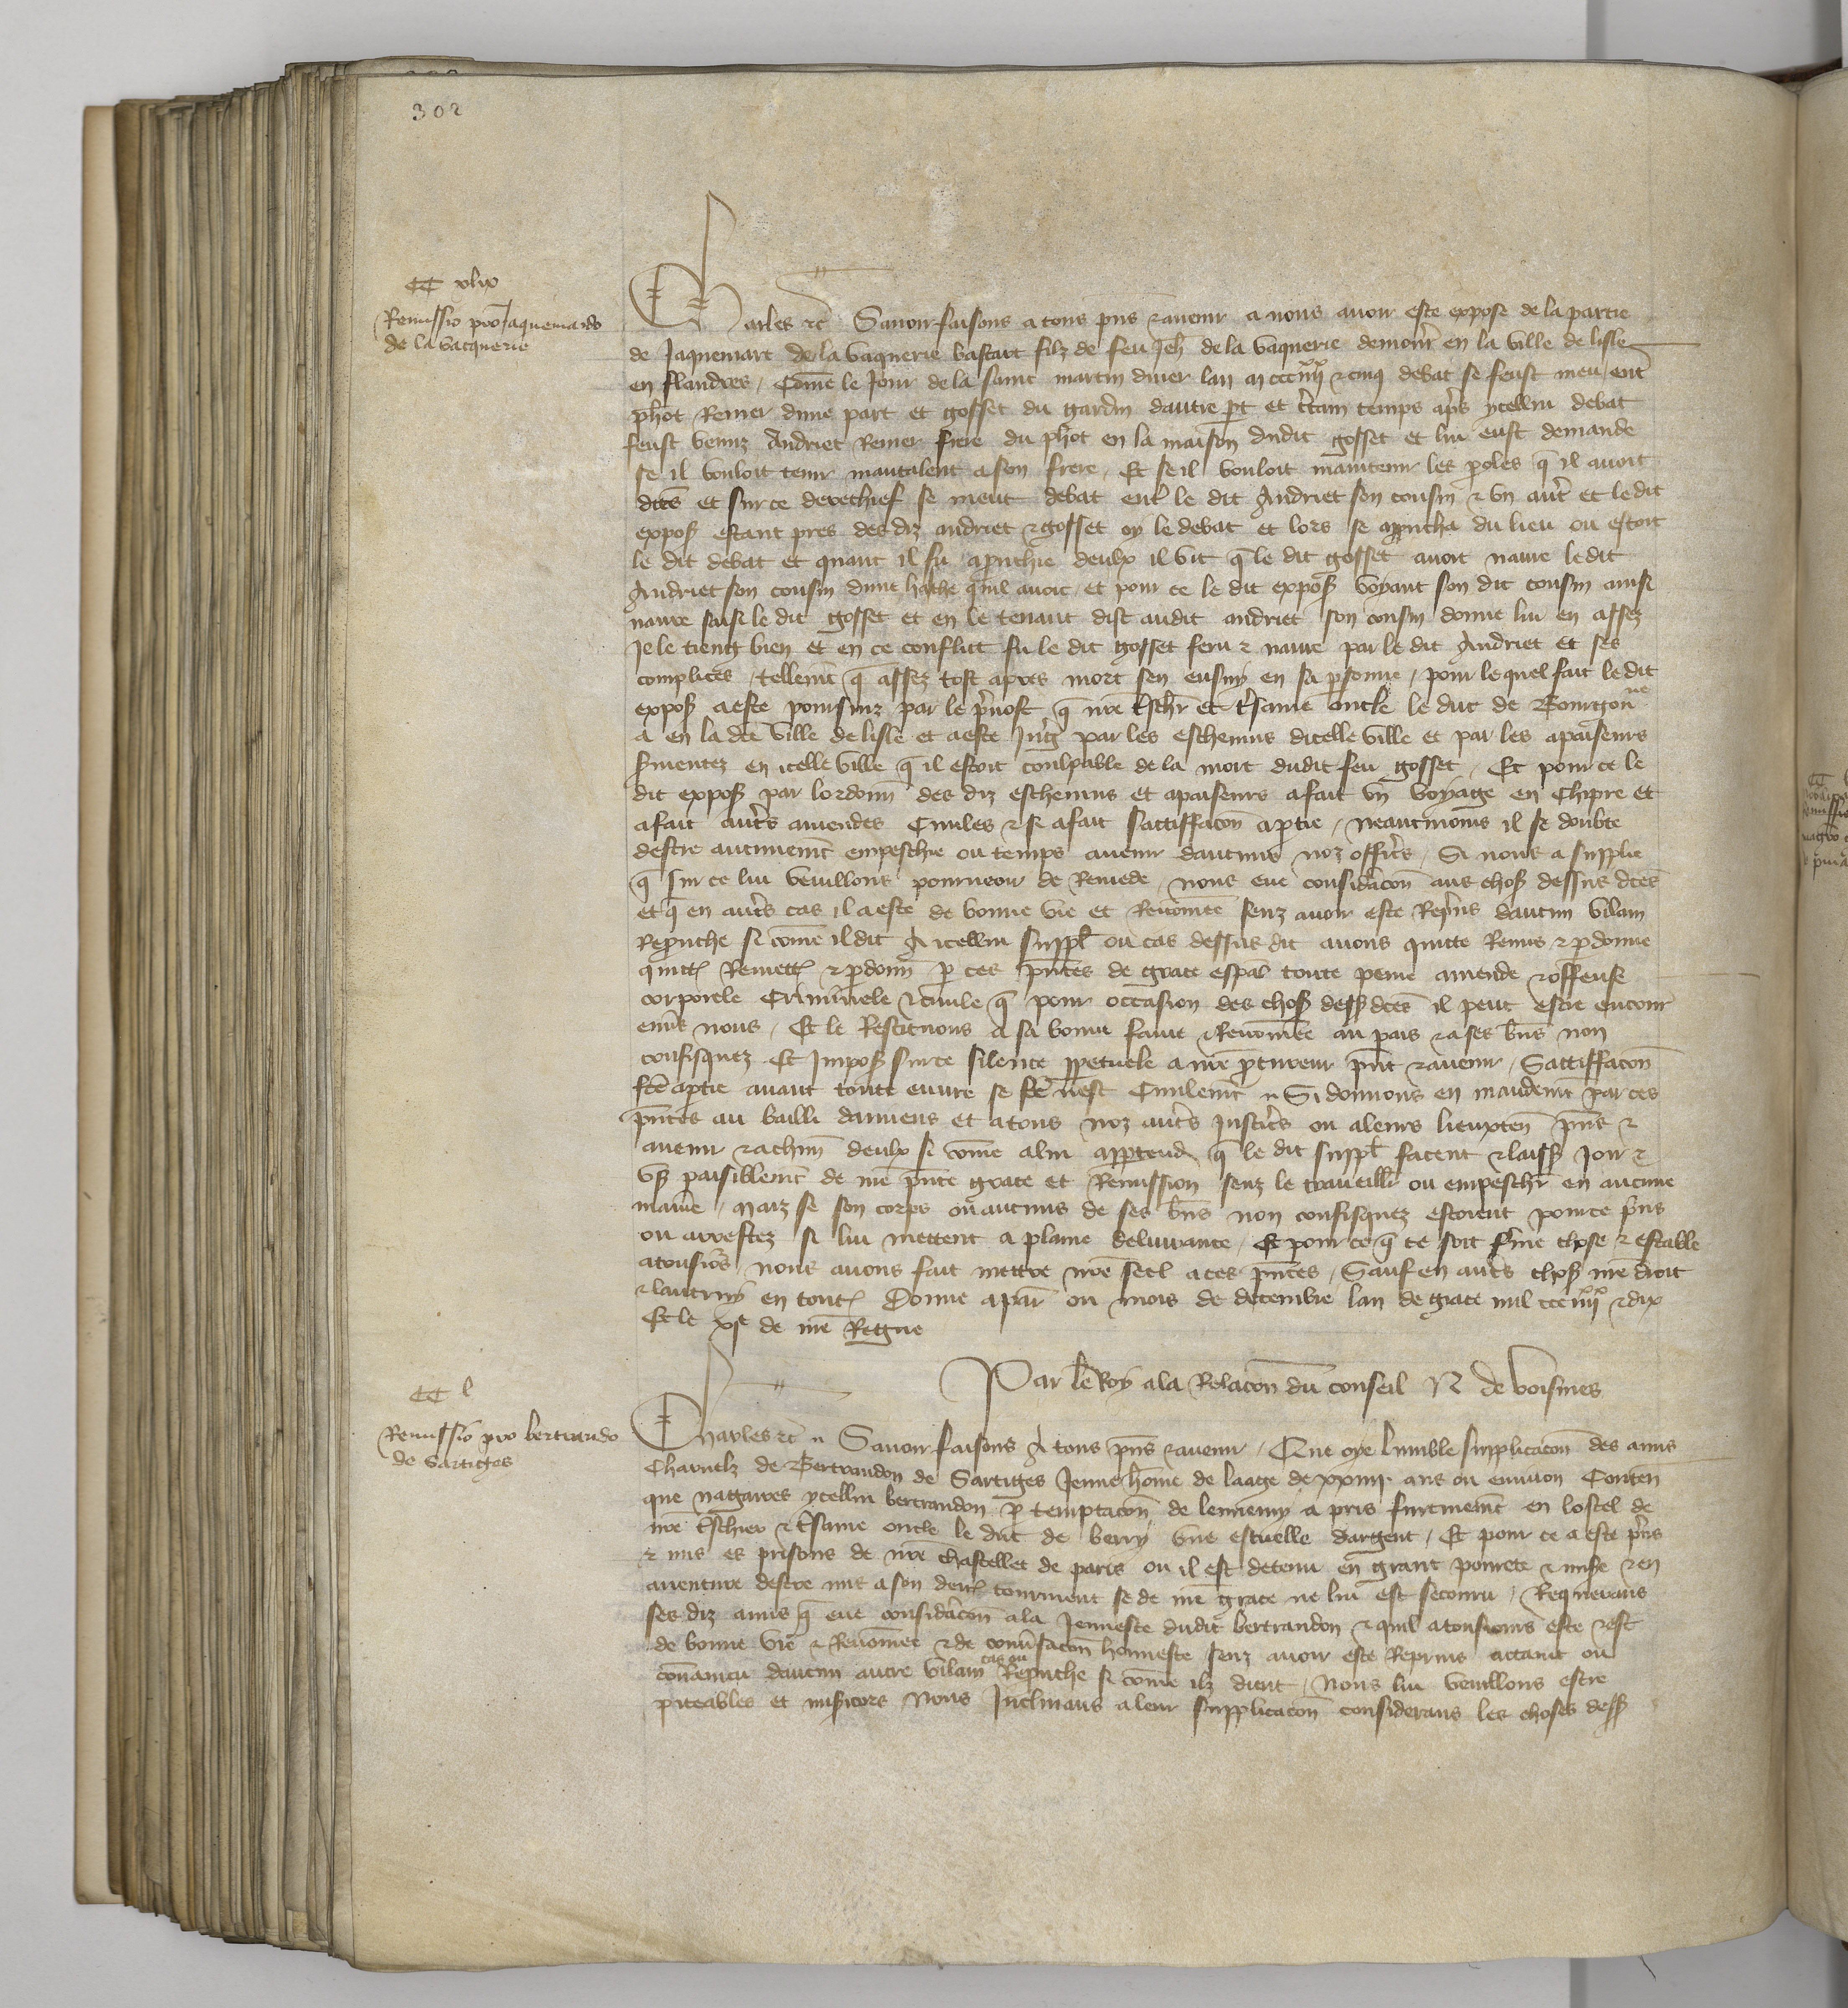 302
CC xlix
Remissio pro Jaquemardo
de la vacquerie
Charles etc Savoir faisons a tous pñs et avenir a nous avoir este expose de la partie
de Jaquemart de la vaquerie bastart filz de feu Jeh de la vaquerie demour en la ville de lisle
en flandres, Cõme le Jour de la saint martin diver lan m ccc iiii xx et cinq debat se feust meu ent
phot Renier dune part et gosset du gardin dautre pt et ctain temps aps ycellui debat
feust venuz Andriet Renier frere du phot en la maison dudit gosset et lui eust demande
se il vouloit tenir mautalent a son frere, Et se il vouloit maintenir les poles q il avoit
dcẽs et sur ce derechief se meut debat entˀ le dit Andriet son cousin et un autˀ et le dit
expoˢ estant pres des diz andriet et gosset oy le debat et lors se aprucha du lieu ou estoit
le dit debat et quant il fu apruchie deulx il vit q̃ le dit gosset avoit navre le dit
Andriet son cousin dune hache quil avoit, et pour ce le dit expoˢ voyant son dit cousin ainsi
navre saisi le dit gosset et en le tenant dist audit andriet son cousin donne lui en assez
Je le tieng bien et en ce conflict fu le dit gosset feru et navre par le dit Andriet et ses
complices, tellemt q̃ assez tost apres mort sen ensuy en sa psonne, pour lequel fait le dit
expoˢ a este poursuiz par le pvost q̃ nr̃e tschˀ et tˀsame oncle le duc de Bourgoñne
a en la dc̃e ville de lisle et a este Jug par les eschevins dicelle ville et par les apaiseurs
sˀmentez en icelle ville q̃ il estoit coulpable de la mort dudit feu gosset, Et pour ce le
dit expoˢ par lordonñ des diz eschevins et apaiseurs a fait un voyage en Chipre et
a fait autˀs amendes Civiles et si a fait sattiffacõn a ptie, neantmoins il se doubte
destre aucunemt empeschie ou temps avenir daucuns noz officˀs, Si nous a supplie
q̃ sur ce lui veuillons pourveoir de Remede, nous eue considˀacõn aus choˢ dessus dc̃es
et q̃ en autˀs cas il a este de bonne vie et Renõmee senz avoir este Repˀis daucun vilain
Repruche si cõme il dit A icellui suppl̃ ou cas dessus dit avons quitte Remis et pdonne
quittˢ Remettˢ et pdonñ p ces pñtes de grace espal̃ toute peine amende et offense
corporele Criminele et civile q̃ pour occasion des choˢ dessˢ dc̃es il peut estre encour
envˀs nous, Et le Restituons a sa bonne fame et Renõmee au pais et a ses bñs non
confisquez Et Impoˢ sur ce silence ppetuele a nr̃e pcureur pñt et avenir, Sattiffacõn
fc̃e a ptie avant toute euvre se fc̃e nest Civilemt Si donnons en mandemt par ces
pñtes au bailli damiens et a tous noz autˀs Justicˀs ou a leurs lieuxteñ pñs et
avenir et a chũn deulx si cõme a lui apptend, q̃ le dit suppl̃ facent et laissˢ Joir et
usˢ paisiblemt de nr̃e pñte grace et Remission senz le traveillˀ ou empeschˀ en aucune
maniˀe, Maiz se son corps ou aucuns de ses bñs non confisquez estoient pour ce pˀns
ou arrestez si lui mettent a plaine delivrance, Et pour ce q̃ ce soit fˀme chose et estable
a tousiõs, nous avons fait mettre nr̃e seel a ces pñtes, Sauf en autˀs choˢ nr̃e droit
et lautruy en toutˢ Donne a paˀ ou mois de decembre lan de grace mil ccc iiii xx et dix
Et le xje de nr̃e Regne
Par le Roy a la Relacõn du conseil N de voisines
CC l
Remissio pro bertrando
de Sartiges
Charles etc Savoir faisons A tous pñs et avenir, Que oye lumble supplicacõn des amis
Charnelz de Bertrandon de Sartiges Jeune hõme de laage de xxiiij. ans ou environ Conteñ
que nagaires ycellui bertrandon p temptacõn de lennemy a pris furtivemt en lostel de
nr̃e tˀschier et tˀsame oncle le duc de berry une escuelle dargent, Et pour ce a este pˀns
et mis es prisons de nr̃e chastellet de paris ou il est detenu en grant povrete et misˀe et en
aventure destre mis a son derˀ tourment se de nr̃e grace ne lui est secouru, Requerans
ses diz amis q̃ eue considˀacõn a la Jeunesse dudit bertrandon et quil a tousiours este et est
de bonne vie et Renõmee et de convˀsacõn honneste senz avoir este Reprins attaint ou
convaincu daucun autre vilain cas ou Repruche si cõme ilz dient, Nous lui veuillons estre
piteables et misˀicors Nous Inclinans a leur supplicacõn considerans les choses dessˢ